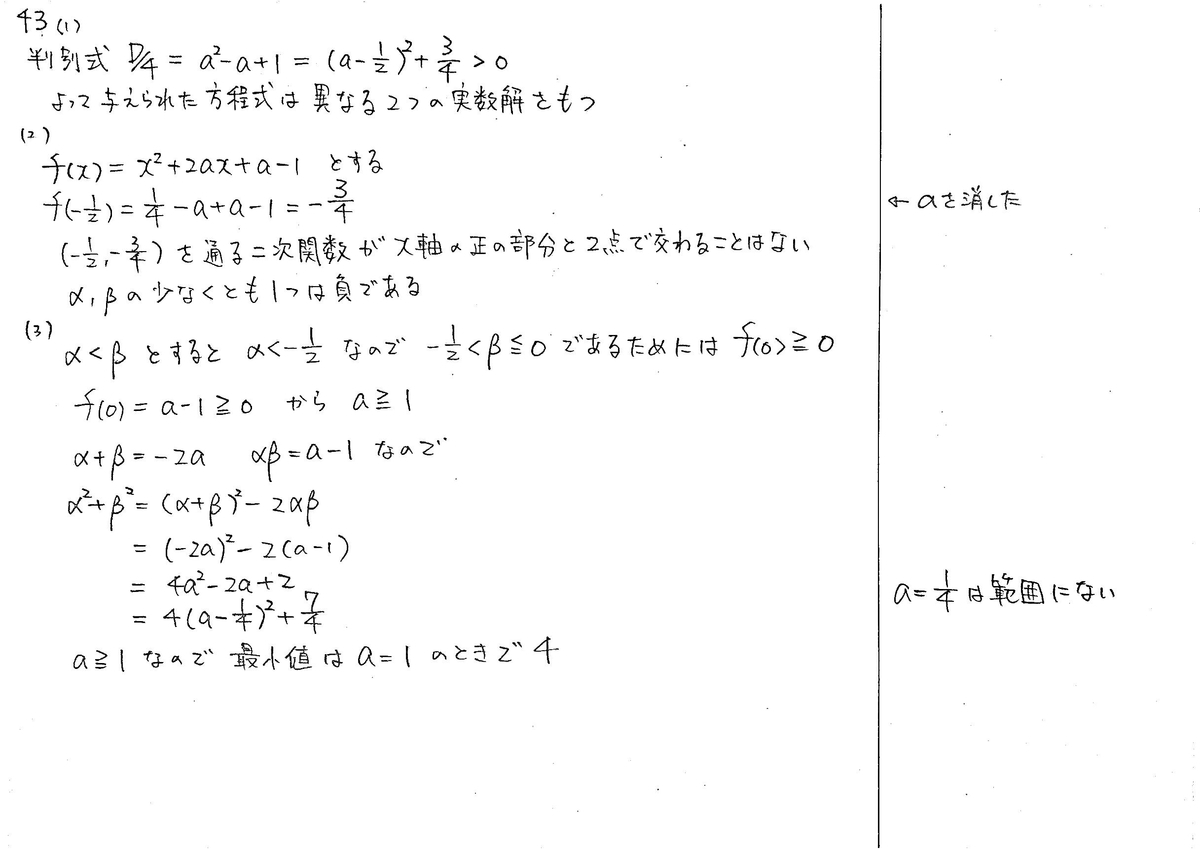 43 (1)
判別式 D/4 = a²-a+1 = (a-1/2)²+3/4 > 0
よって与えられた方程式は異なる2つの実数解をもつ
(2)
f(x) = x²+2ax+a-1 とする
f(-1/2) = 1/4 -a+a-1 = -3/4
← aを消した
(-1/2, -3/4) を通る二次関数がx軸の正の部分と2点で交わることはない
α, βの少なくとも1つは負である
(3)
α<β とすると α<-1/2 なので -1/2<β≦0 であるためには f(0)≧0
f(0) = a-1≧0 から a≧1
α+β=-2a αβ=a-1 なので
α²+β²= (α+β)²- 2αβ
= (-2a)²- 2(a-1)
= 4a²-2a+2
a=1/4は範囲にない
= 4(a-1/4)²+7/4
a≧1なので最小値はa=1のときで4